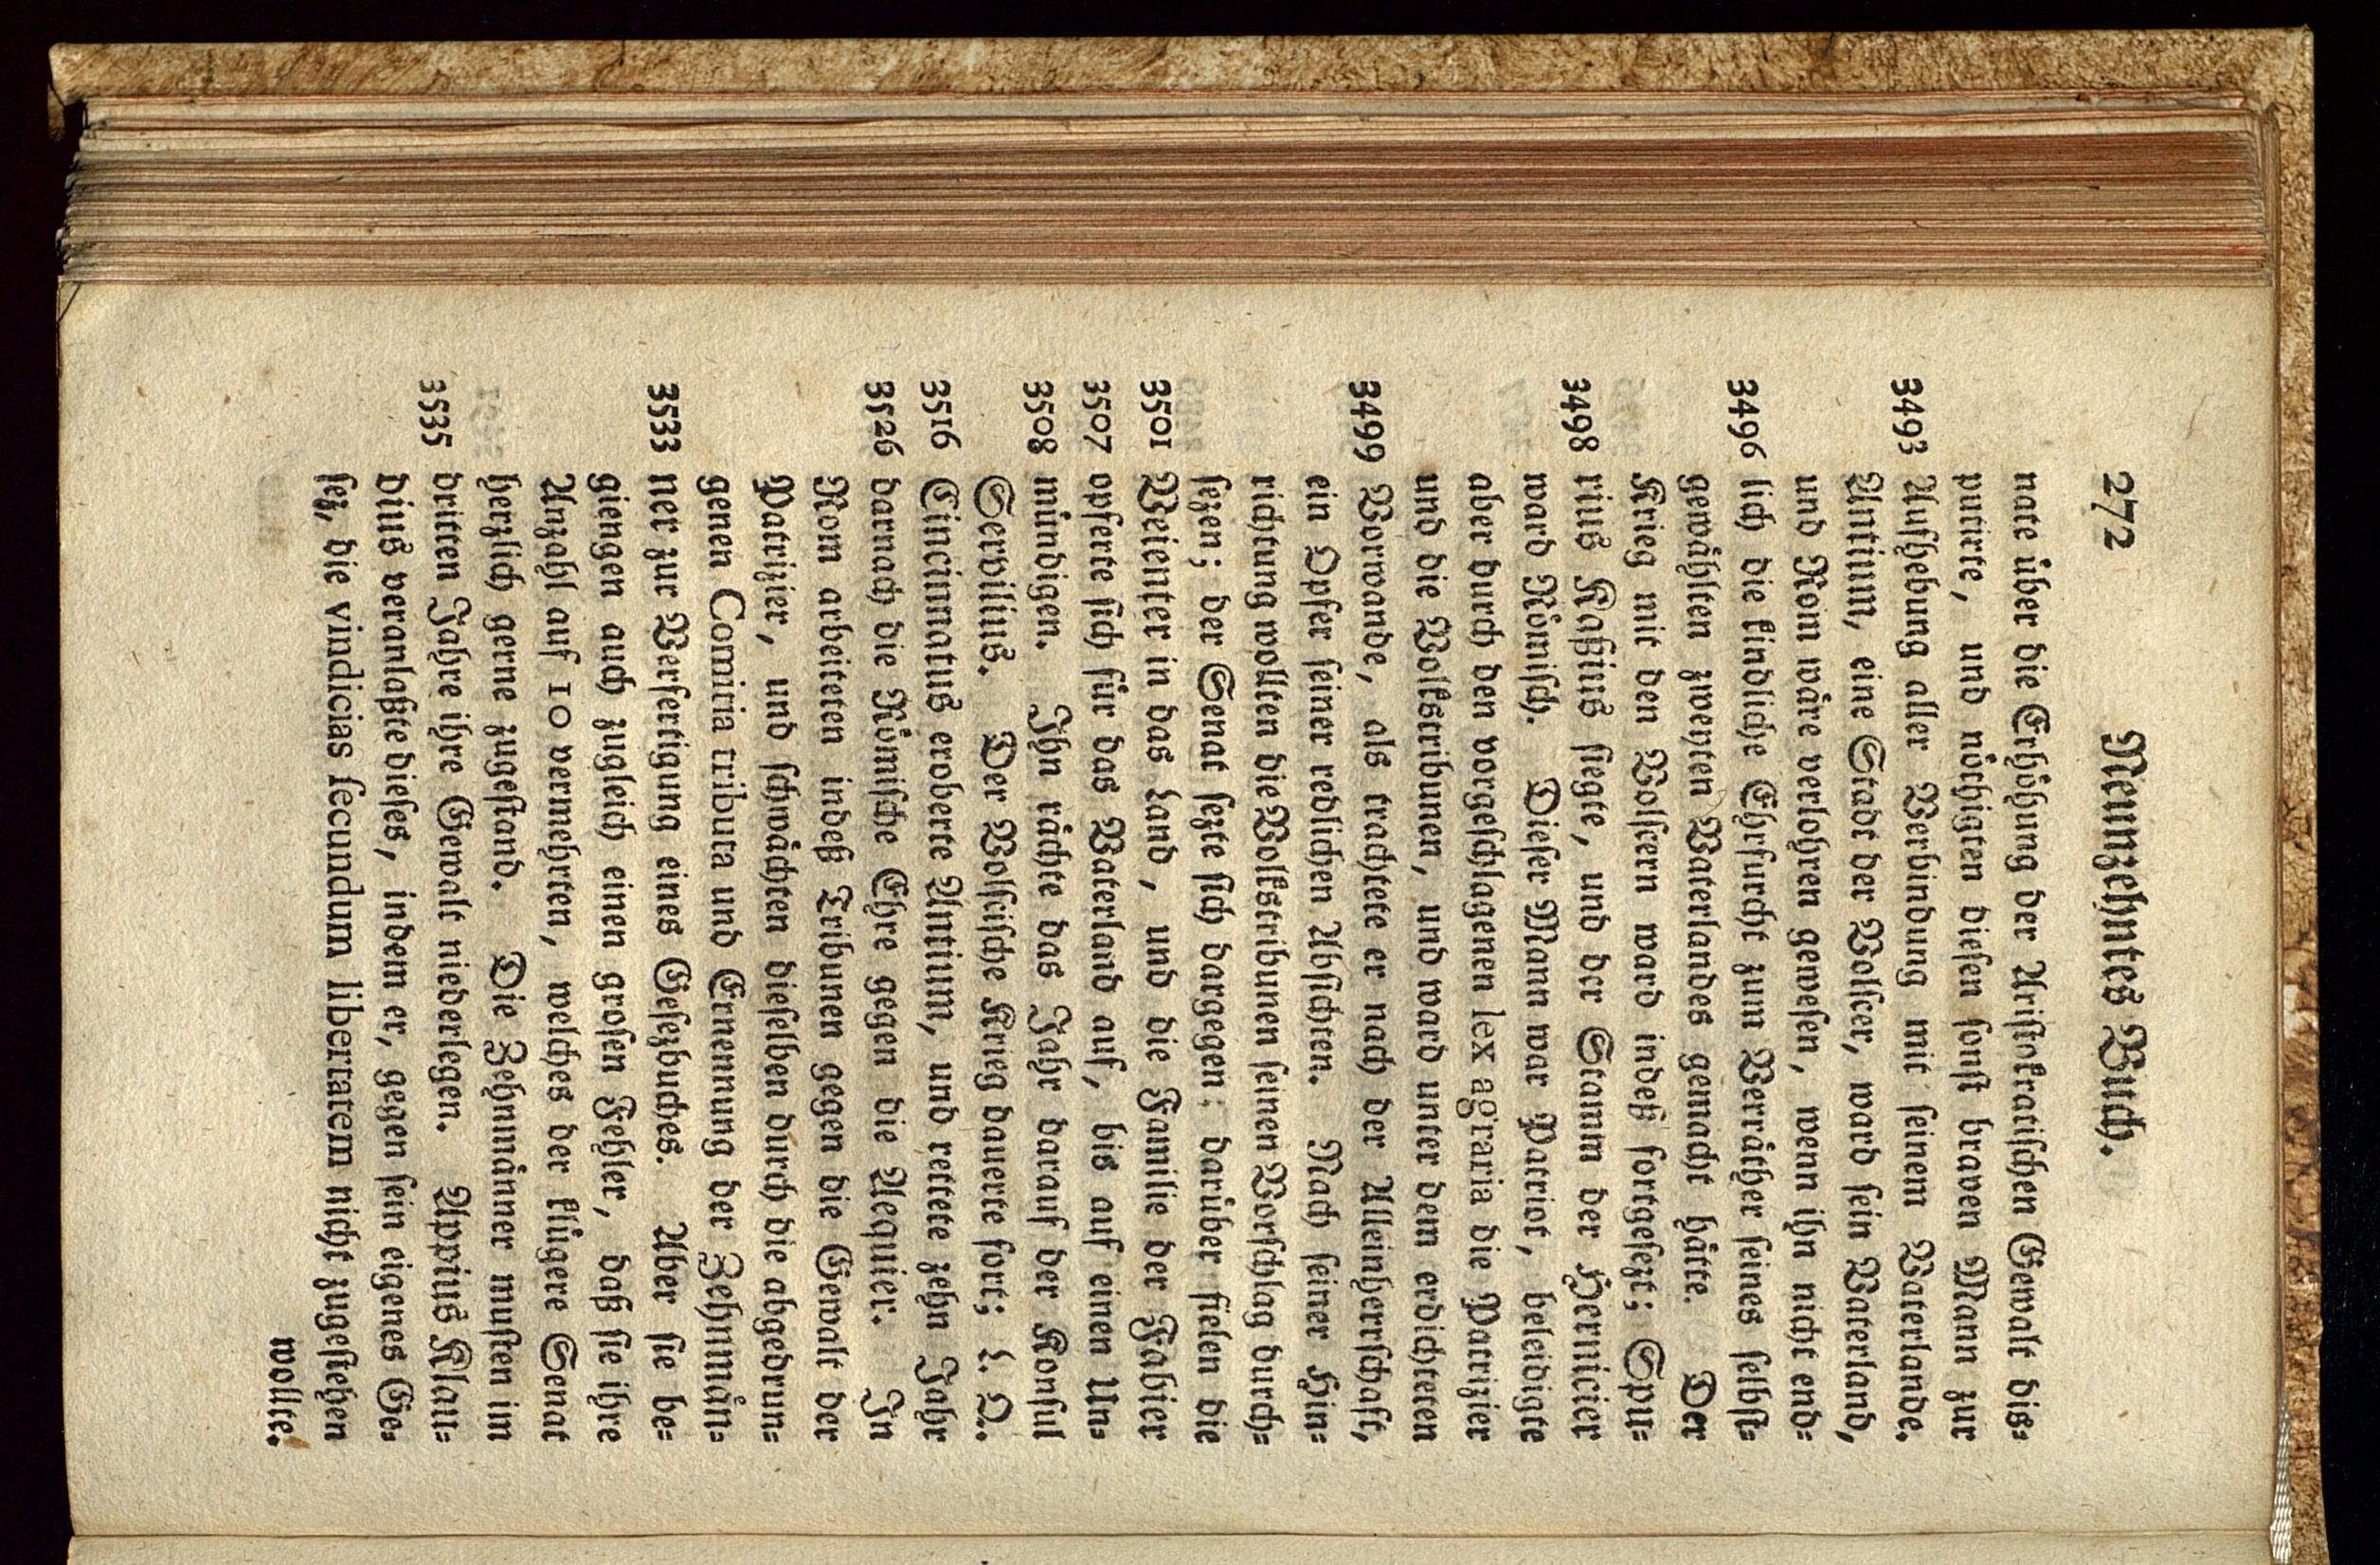 272 Neunzehntes Buch.
nate über die Erhöhung der Aristokratischen Gewalt dis-
putirte, und nöthigten diesen sonst braven Mann zur
3493 Aufhebung aller Verbindung mit seinem Vaterlande.
Antium, eine Stadt der Volscer, ward sein Vaterland,
und Rom wäre verlohren gewesen, wenn ihn nicht end-
3496 lich die kindliche Ehrfurcht zum Verräther seines selbst-
gewählten zweyten Vaterlandes gemacht hätte. Der
Krieg mit den Volscern ward indeß fortgesezt; Spu-
3498 rius Kaßius siegte, und der Stamm der Hernicier
ward Römisch. Dieser Mann war Patriot, beleidigte
aber durch den vorgeschlagenen lex agraria die Patrizier
und die Volkstribunen, und ward unter dem erdichteten
3499 Vorwande, als trachtete er nach der Alleinherrschaft,
ein Opfer seiner redlichen Absichten. Nach seiner Hin-
richtung wollten die Volkstribunen seinen Vorschlag durch-
sezen; der Senat sezte sich dargegen: darüber fielen die
3501 Veienter in das Land, und die Familie der Fabier
3507 opferte sich für das Vaterland auf, bis auf einen Un-
3508 mündigen. Ihn rächte das Jahr darauf der Konsul
Servilius. Der Volscische Krieg dauerte fort; L. Q.
3516 Cincinnatus eroberte Antium, und rettete zehn Jahr
3526 darnach die Römische Ehre gegen die Aequier. In
Rom arbeiteten indeß Tribunen gegen die Gewalt der
Patrizier, und schwächten dieselben durch die abgedrun-
genen Comitia tributa und Ernennung der Zehnmän-
3533 ner zur Verfertigung eines Gesezbuches. Aber sie be-
giengen auch zugleich einen grosen Fehler, daß sie ihre
Anzahl auf 10 vermehrten, welches der klügere Senat
herzlich gerne zugestand. Die Zehnmänner musten im
3535 dritten Jahre ihre Gewalt niederlegen. Appius Klau-
dius veranlaßte dieses, indem er, gegen sein eigenes Ge-
sez, die vindicias secundum libertatem nicht zugestehen
wollte.